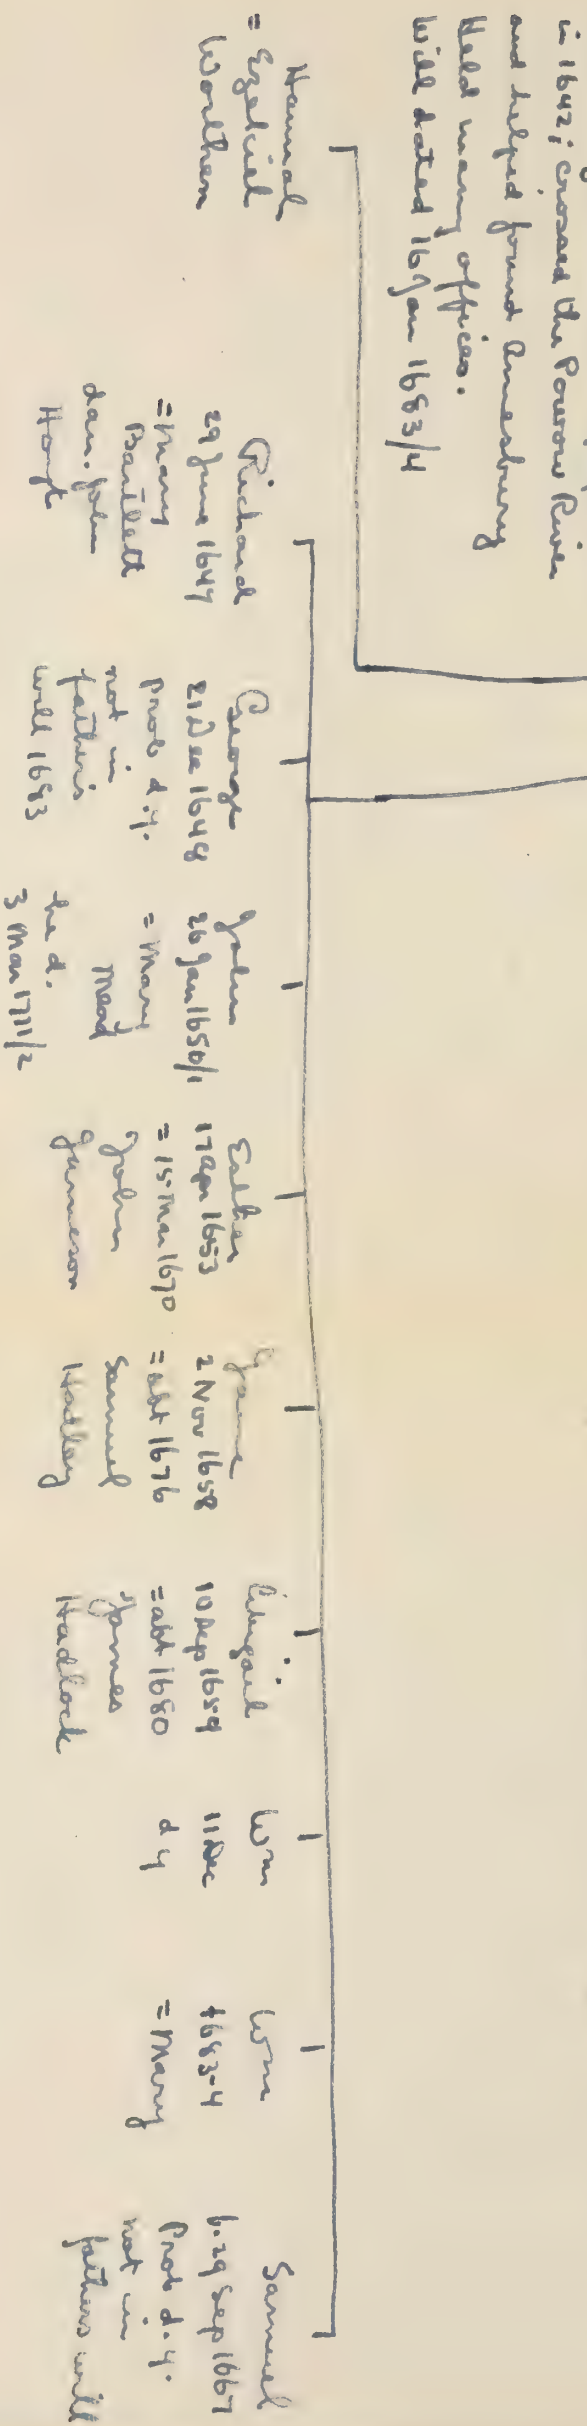 in 1642; crossed the Powow River
and helped found Amesbury
Held many offices.
Will dated 16 Jan 1683/4
Hannah
= Ezekiel
Worthen
Richard
29 June 1647
= Mary
Bartlett
dau. John
Hoyt
George
21 Dec 1648
prob d.y.
not in
father's
will 1683
John
26 Jan 1650/1
= Mary
Mead
he d.
3 Mar 1711/2
Esther
17 Apr 1653
= 15 Mar 1670
John
Jameson
Jane
2 Nov 1658
= abt 1676
Samuel
Hadley
Abigail
10 Sep 1659
= abt 1680
James
Hadlock
Wm
11 Dec
d y
Wm
1683-4
= Mary
Samuel
b. 29 Sep 1667
Prob d.y.
not in
fathers will